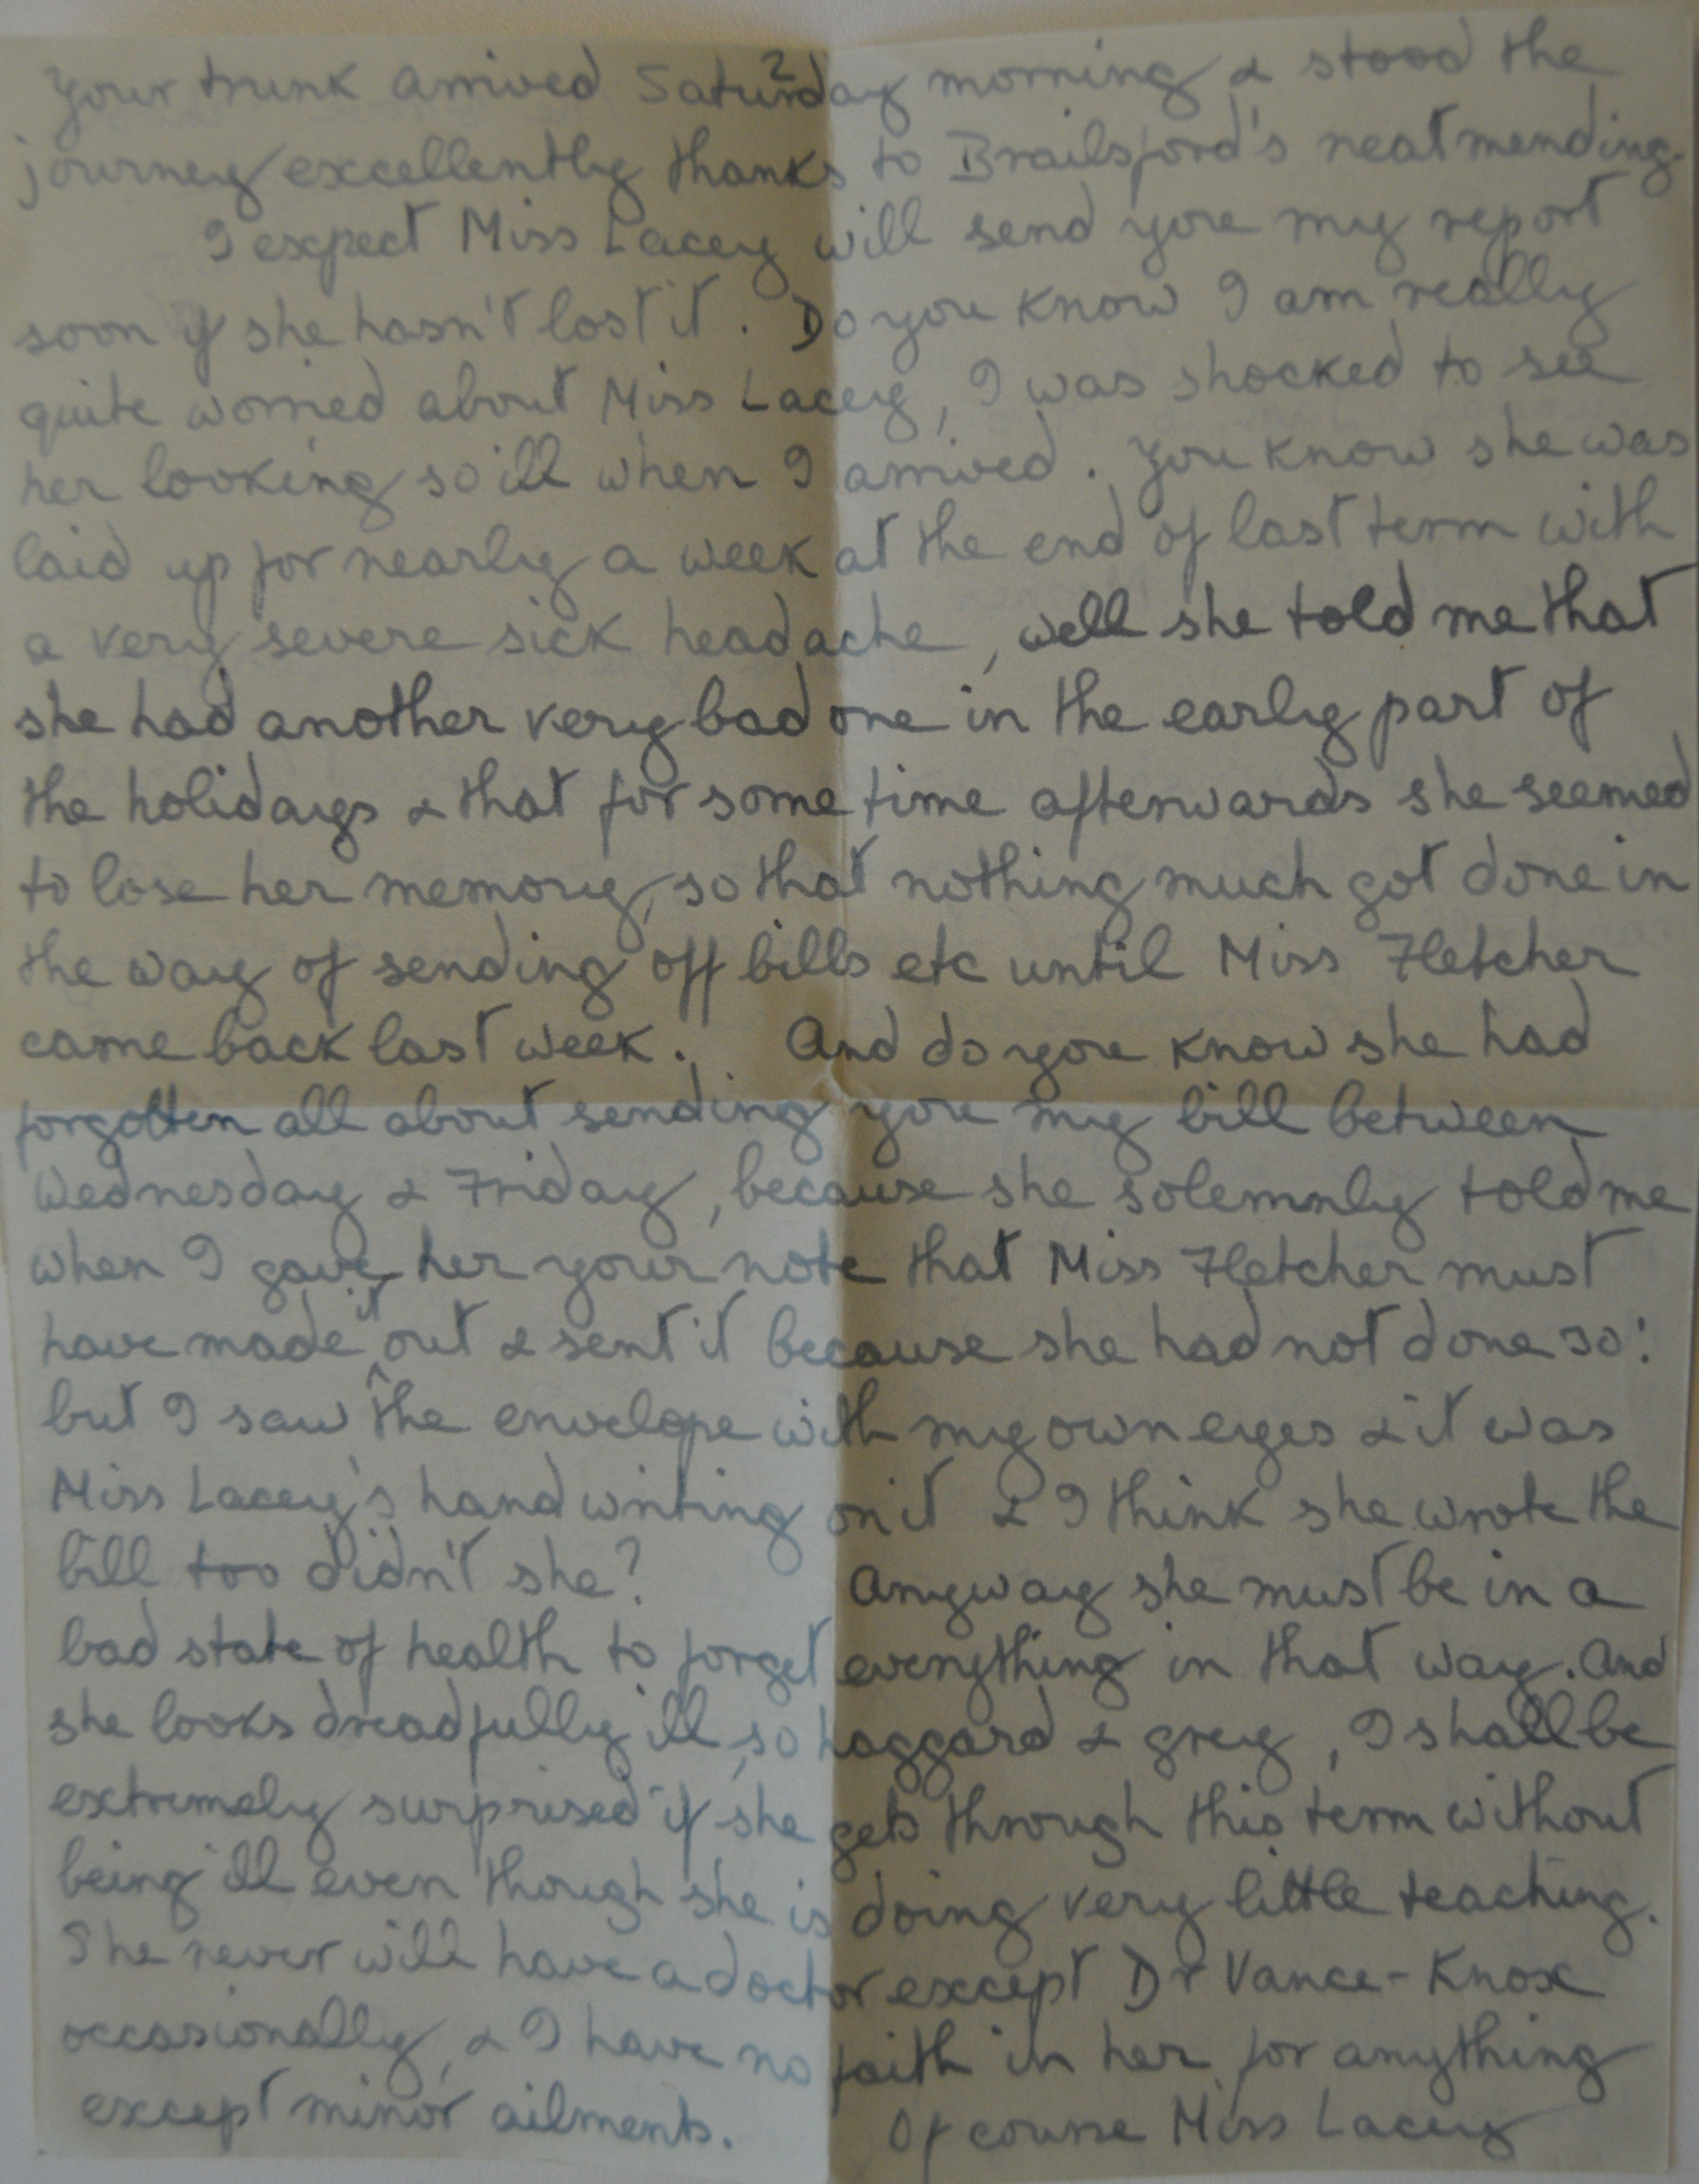 2
Your trunk arrived Saturday morning & stood the
journey excellently thanks to Brailsford's neat mending.
I expect Miss Lacey will send you my report
soon if she hasn't lost it. Do you know I am really
quite worried about Miss Lacey, I was shocked to see
her looking so ill when I arrived. You know she was
laid up for nearly a week at the end of last term with
a very severe sick headache, well she told me that
she had another very bad one in the early part of
the holidays & that for some time afterwards she seemed
to lose her memory, so that nothing much got done in
the way of sending off bills etc until Miss Fletcher
came back last week. And do you know she had
forgotten all about sending you my bill between
Wednesday & Friday, because she solemnly told me
when I gave her your note that Miss Fletcher must
have made it out & sent it because she had not done so!
but I saw the envelope with my own eyes & it was
Miss Lacey's hand writing on it & I think she wrote the
bill too didn't she? Anyway she must be in a
bad state of health to forget everything in that way. And
she looks dreadfully ill, so haggard & grey, I shall be
extremely surprised if she gets through this term without
being ill even though she is doing very little teaching.
She never will have a doctor except Dr Vance-Knox
occasionally, & I have no faith in her for anything
except minor ailments. Of course Miss Lacey